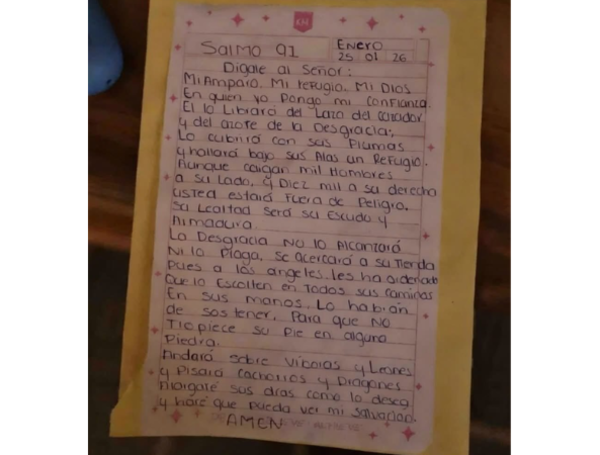 Salmo 91
Enero
25 01 26
Digale al Señor:
Mi Amparo. Mi refugio. Mi Dios
En quien yo Pongo mi confianza.
El lo Librará del Lazo del cazador,
y del azote de la Desgracia;
Lo cubrirá con sus Plumas
y hallará bajo sus Alas un Refugio.
Aunque caigan mil Hombres
a su Lado, y Diez mil a su derecha
usted estará Fuera de Peligro,
su Lealtad será su Escudo y
Armadura
La Desgracia No lo Alcanzará
Ni la Plaga, se acercará a su Tienda
Pues a los angeles, Les ha ordenado
Que lo Escolten en Todos sus caminos
En sus manos, Lo habrán
de sostener, Para que No
Tropiece su Pie en alguna
Piedra.
Andará sobre Viboras y Leones
y Pisará cachorros y Dragones
Alargaré sus dias como lo desea
y haré que pueda ver mi salvación.
AMEN